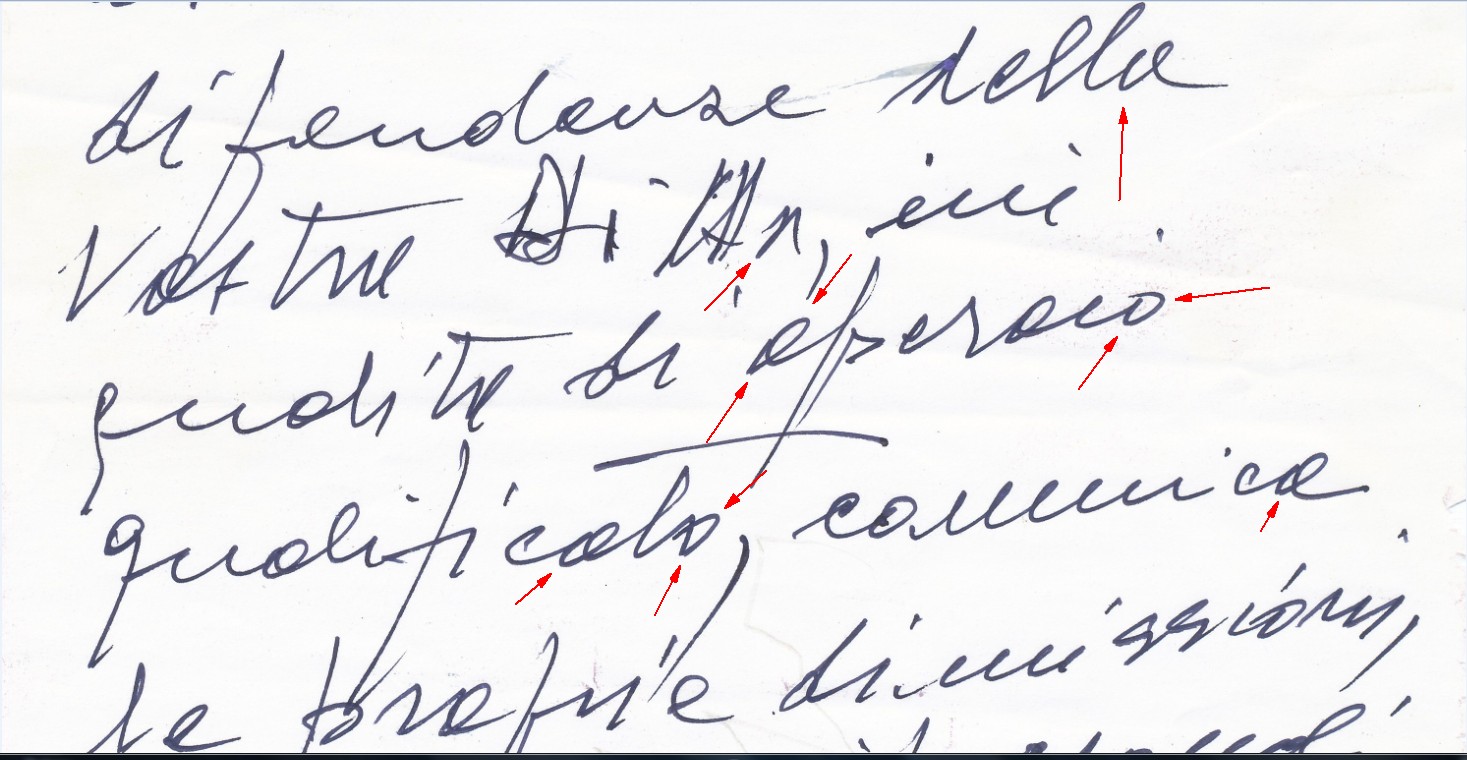 dipendenze della
Vostra Ditta, in
qualità di operaio
qualificato, comunica
le proprie dimissioni,